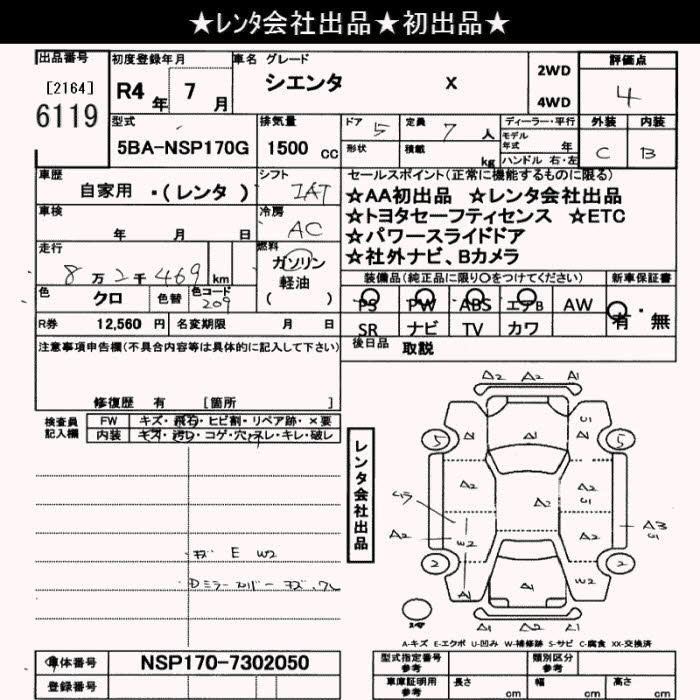 ★ﾚﾝﾀ会社出品★初出品★
出品番号 初度登録年月 車名 グレード 評価点
[2164] R4年 7月 シエンタ X 2WD 4
6119 4WD
型式 排気量 ドア 5 定員 7人 ディーラー・平行 外装 内装
5BA-NSP170G 1500 cc 形状 積載 kg モデル年式 年 C B
ハンドル 右・左
車歴 シフト セールスポイント(正常に機能するものに限る)
自家用 ・(レンタ ) IAT ☆AA初出品 ☆レンタ会社出品
車検 冷房 ☆トヨタセーフティセンス ☆ETC
年 月 日 AC ☆パワースライドドア
走行 燃料 ☆社外ナビ、Bカメラ
8万2千469km ガソリン
軽油
( )
装備品(純正品に限り○をつけてください) 新車保証書
色 クロ 色替 色コード 209 PS PW ABS エアB AW 有・無
R券 12,560 円 名変期限 月 日 SR ナビ TV カワ
注意事項申告欄(不具合内容等は具体的に記入して下さい) 後日品 取説
修復歴 有 [箇所 ]
検査員記入欄 FW キズ・飛石・ヒビ割・リペア跡・×要
内装 キズ・汚れ・コゲ・穴・スレ・キレ・破レ
レンタ会社出品
A2 A2 A1
U1
5 A1 5
A2 A2 A2
U1
A2
A2 W2 A2 A3
U1
2 2
A1 A1 W2
A1
A1 A2 A1
キズ E W2
A-キズ E-エクボ U-凹み W-補修跡 S-サビ C-腐食 XX-交換済
車体番号 NSP170-7302050 型式指定番号 参考 類別区分 参考
登録番号 車庫証明用 参考 長さ cm 幅 cm 高さ cm